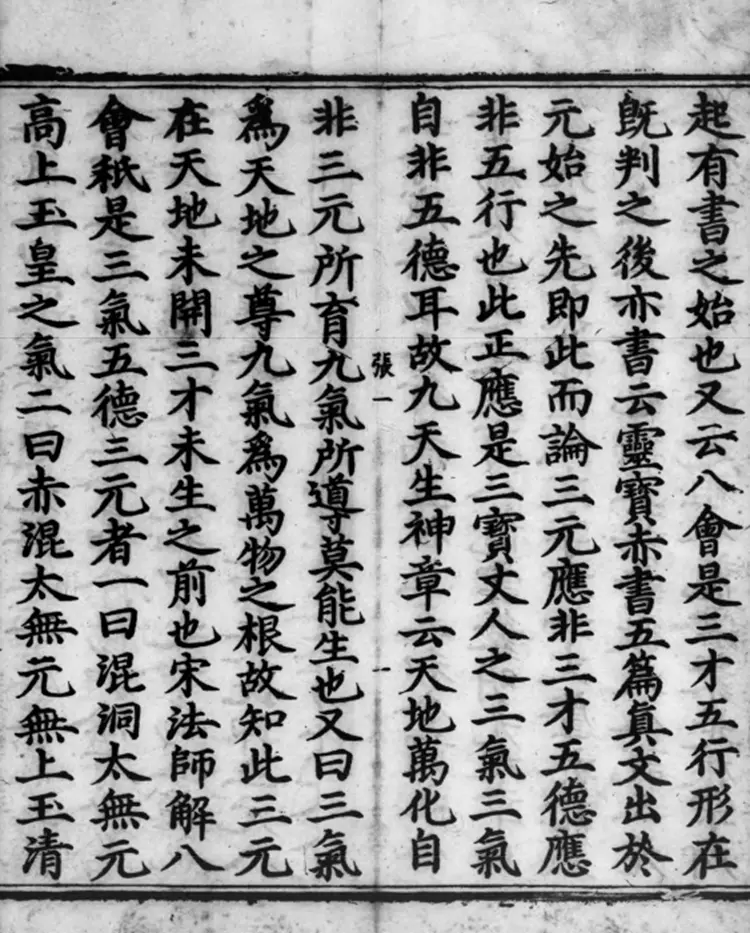 起有書之始也又云八會是三才五行形在
旣判之後亦書云靈寶赤書五篇眞文出於
元始之先即此而論三元應非三才五德應
非五行也此正應是三寶丈人之三氣三氣
自非五德耳故九天生神章云天地萬化自
張一
一
非三元所育九氣所導莫能生也又曰三氣
爲天地之尊九氣爲萬物之根故知此三元
在天地未開三才未生之前也宋法師解八
會秖是三氣五德三元者一曰混洞太無元
高上玉皇之氣二曰赤混太無元無上玉清